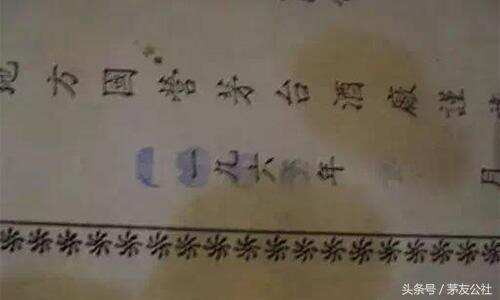 地方国營茅台酒廠謹
一九六 年 月
头条号 / 茅友公社